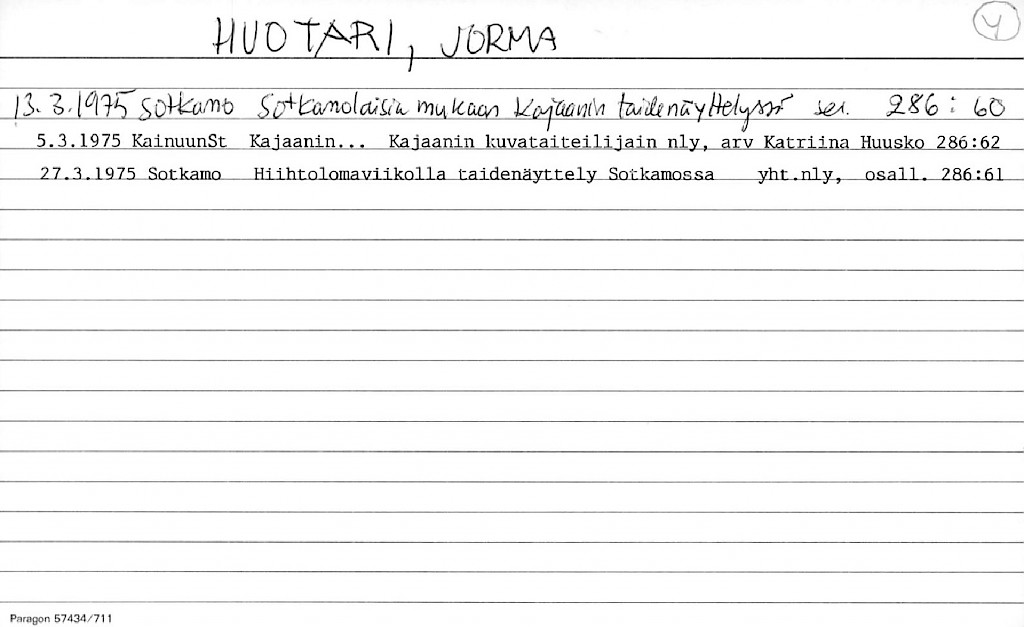 HUOTARI, JORMA
Y
13.3.1975 Sotkamo Sotkamolaisia mukaan Kajaanin taidenäyttelyssä ser. 286:60
5.3.1975 KainuunSt Kajaanin... Kajaanin kuvataiteilijain nly, arv Katriina Huusko 286:62
27.3.1975 Sotkamo Hiihtolomaviikolla taidenäyttely Sotkamossa yht.nly, osall. 286:61
Paragon 57434/711